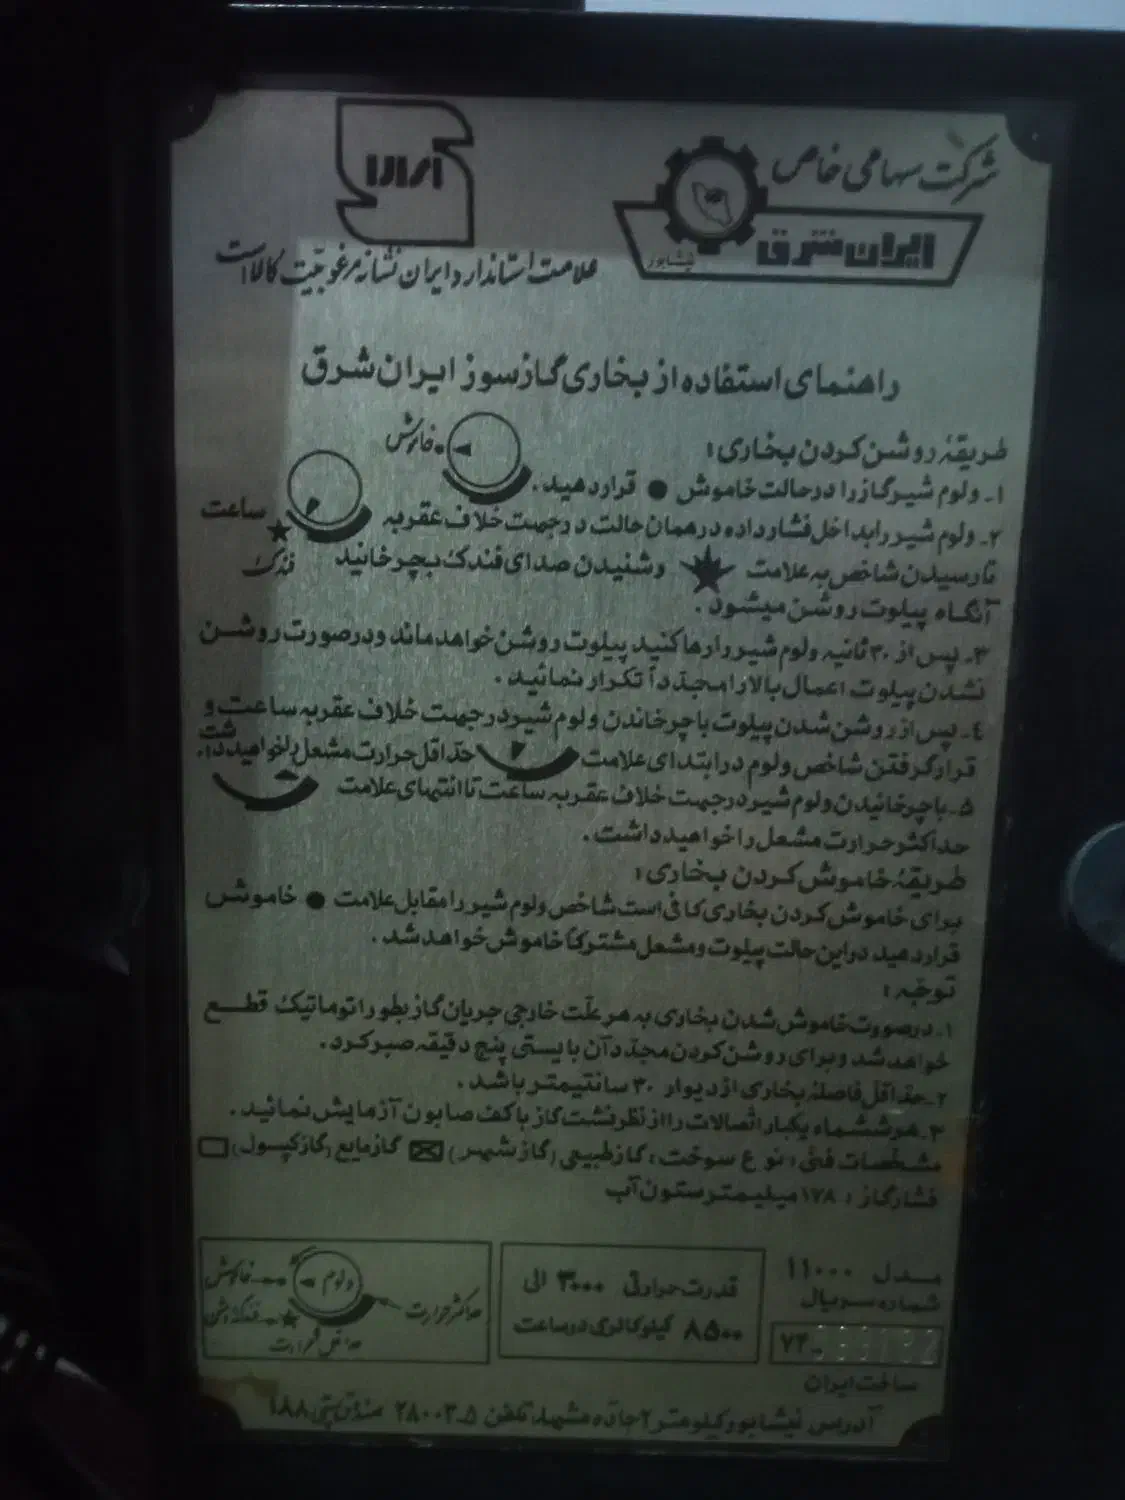 شرکت سهامی خاص
ایران شرق
نیشابور
علامت استاندارد ایران نشانه مرغوبیت کالا است
راهنمای استفاده از بخاری گازسوز ایران شرق
طریقهٔ روشن کردن بخاری:
۱ـ ولوم شیر گاز را در حالت خاموش ● قرار دهید. خاموش
۲ـ ولوم شیر را بداخل فشار داده در همان حالت در جهت خلاف عقربه ساعت
تا رسیدن شاخص به علامت ★ و شنیدن صدای فندک بچرخانید ★ فندک
آنگاه پیلوت روشن میشود.
۳ـ پس از ۳۰ ثانیه ولوم شیر را رها کنید پیلوت روشن خواهد ماند و در صورت روشن
نشدن پیلوت اعمال بالا را مجدداً تکرار نمائید.
٤ـ پس از روشن شدن پیلوت با چرخاندن ولوم شیر در جهت خلاف عقربه ساعت و
قرار گرفتن شاخص ولوم در ابتدای علامت حداقل حرارت مشعل را خواهید داشت.
۵ـ با چرخانیدن ولوم شیر در جهت خلاف عقربه ساعت تا انتهای علامت
حداکثر حرارت مشعل را خواهید داشت.
طریقهٔ خاموش کردن بخاری:
برای خاموش کردن بخاری کافی است شاخص ولوم شیر را مقابل علامت ● خاموش
قرار دهید در این حالت پیلوت و مشعل مشترکاً خاموش خواهد شد.
توجه:
۱ـ در صورت خاموش شدن بخاری به هر علّت خارجی جریان گاز بطور اتوماتیک قطع
خواهد شد و برای روشن کردن مجدد آن بایستی پنج دقیقه صبر کرد.
۲ـ حداقل فاصلهٔ بخاری از دیوار ۳۰ سانتیمتر باشد.
۳ـ هر ششماه یکبار اتصالات را از نظر نشت گاز با کف صابون آزمایش نمائید.
مشخصات فنی: نوع سوخت: گاز طبیعی (گاز شهر) ☒ گاز مایع (گاز کپسول) ☐
فشار گاز: ۱۷۸ میلیمتر ستون آب
مدل ۱۱۰۰۰
شماره سریال
۷۴
ساخت ایران
قدرت حرارتی ۳۰۰۰ الی
۸۵۰۰ کیلو کالری در ساعت
ولوم
خاموش
حداکثر حرارت
حداقل حرارت
آدرس نیشابور کیلومتر ۲ جاده مشهد تلفن ۵ـ۲۸۰۰۳ صندوق پستی ۱۸۸